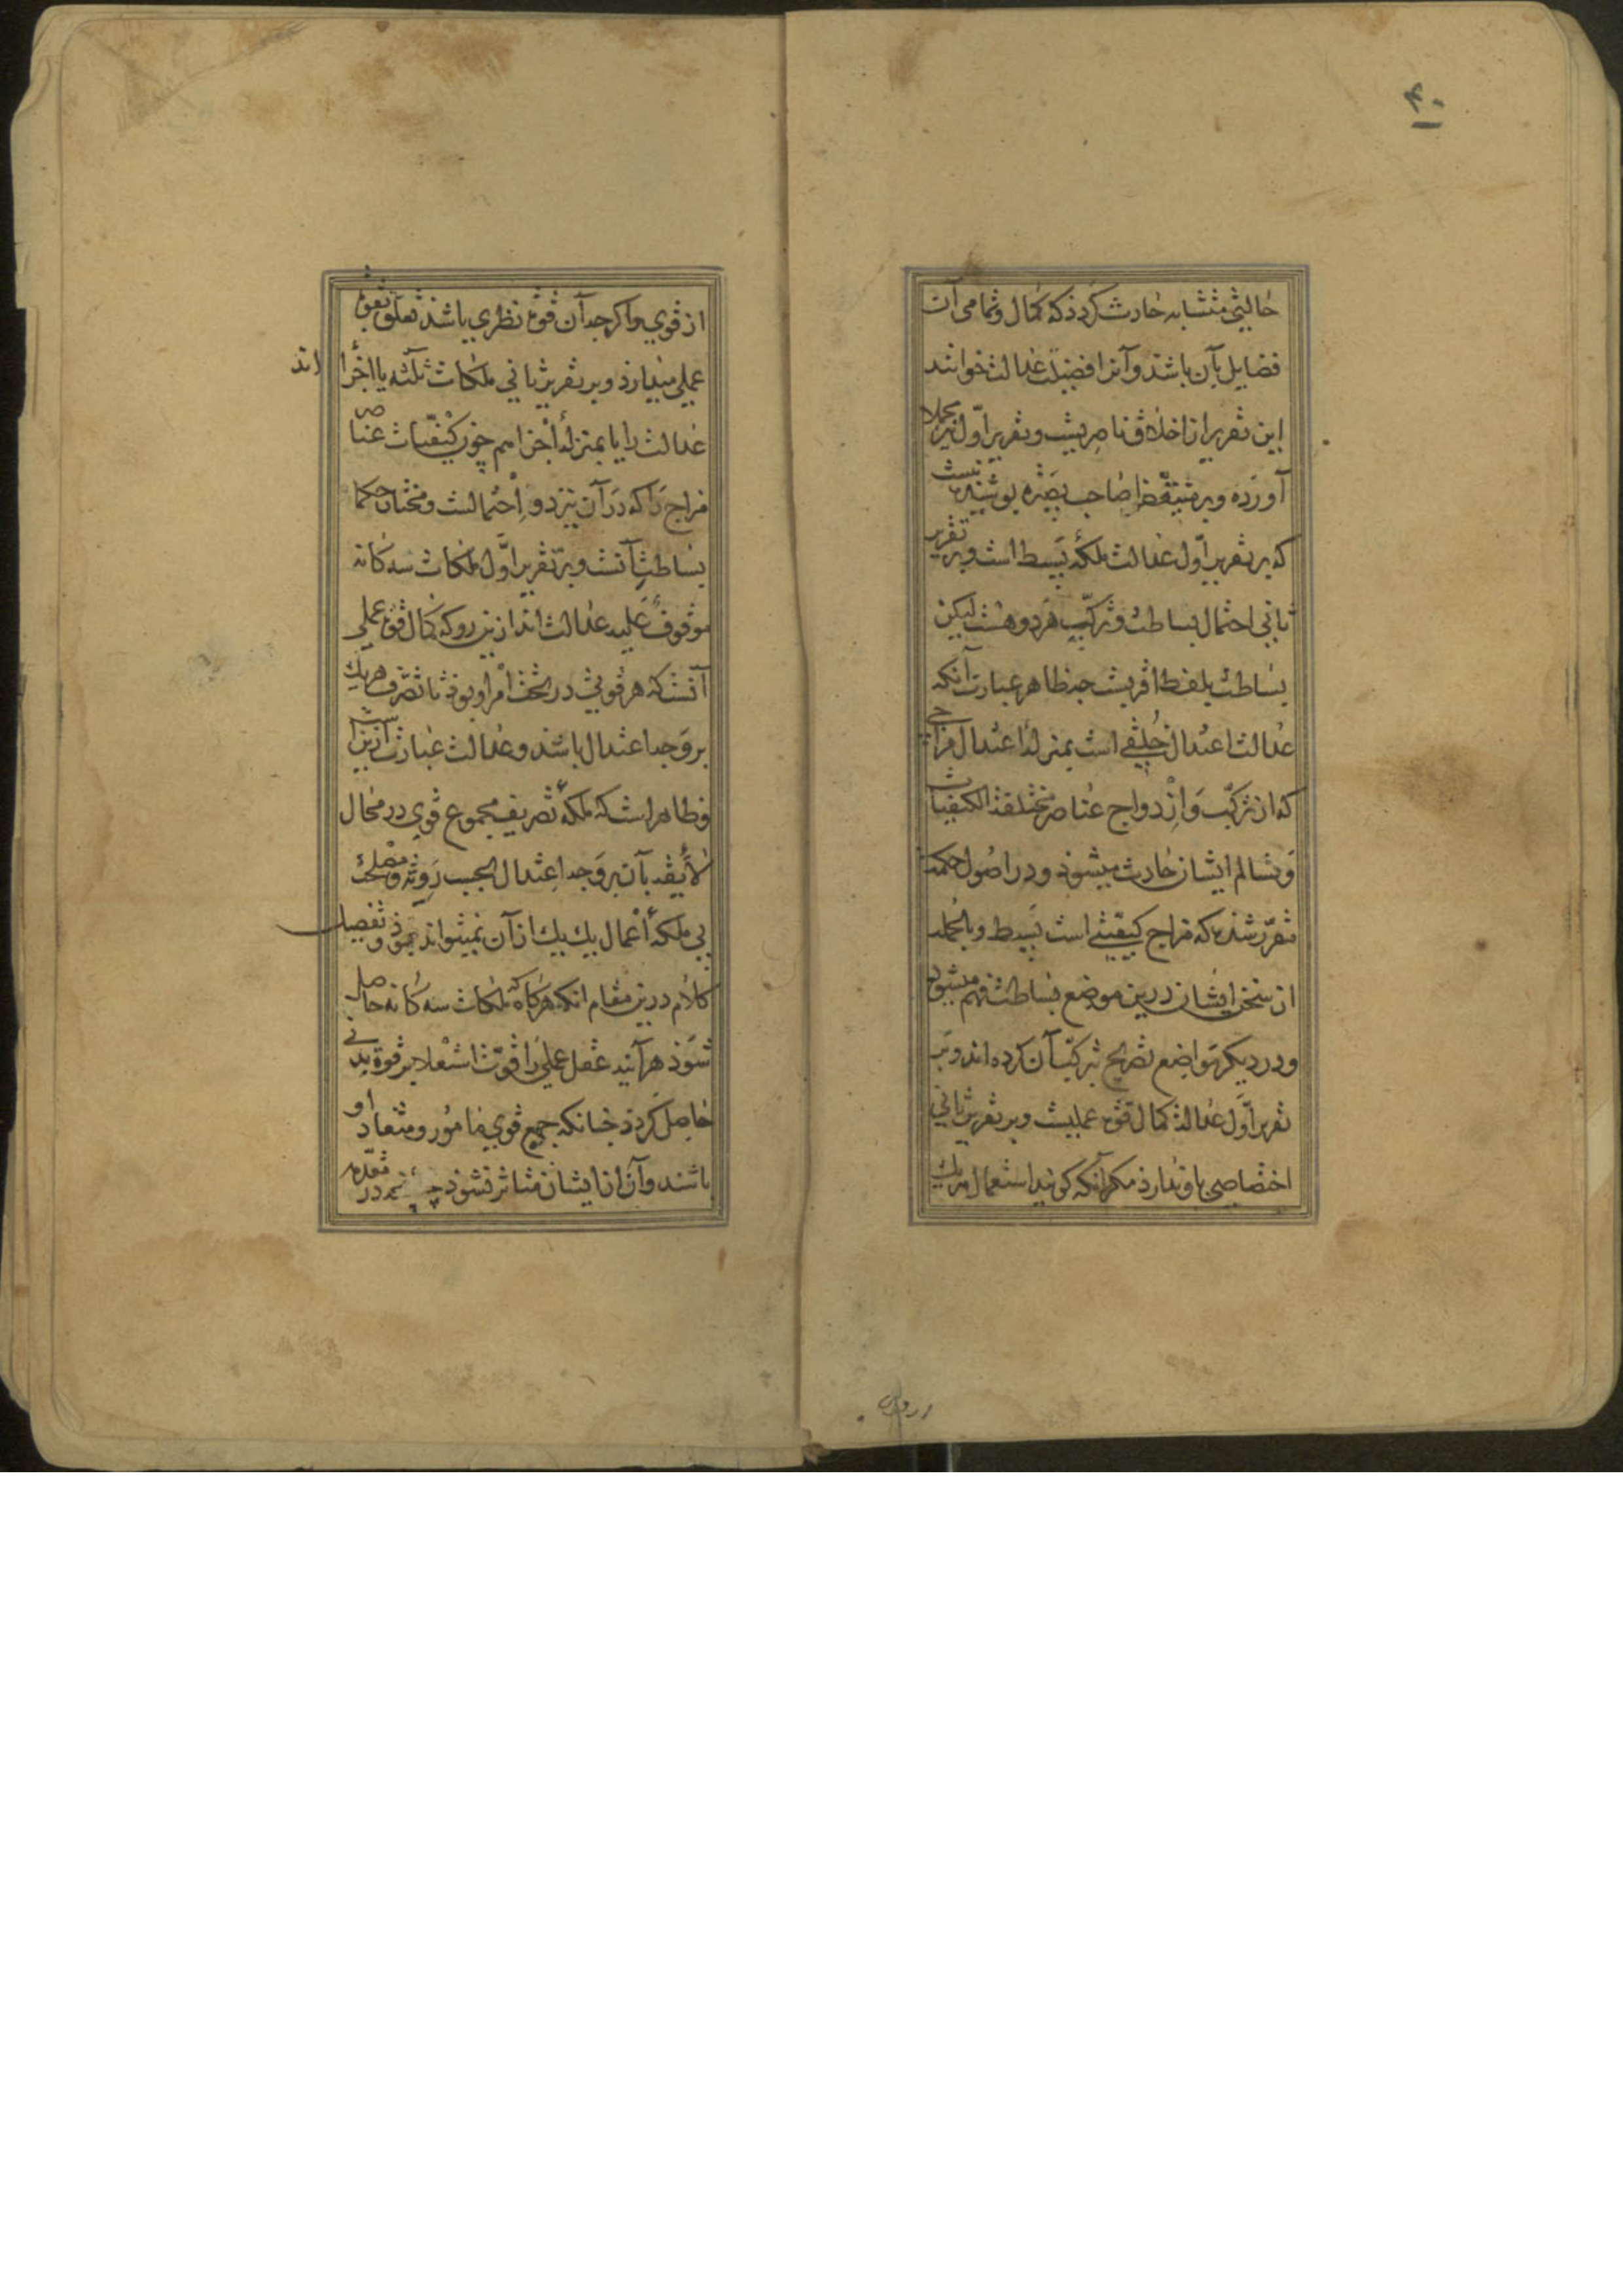 ۴۰
حالتی متشابه حادث گردذ که کمال و تمامی آن
فضایل بآن باشذ و آنرا فضیلت عدالت خوانند
این تقریر از اخلاق ناصریست و تقریر اول نیز مجملا
آورده و بر متیقظ صاحب بصیره پوشیده نیست
که بر تقریر اول عدالت ملکهٔ بسیط است و بر تقریر
ثانی احتمال بساطت و ترکیب هر دو هست لیکن
بساطت بلفظ اقربست جه ظاهر عبارت آنکه
عدالت اعتدال خلقی است بمنزلهٔ اعتدال مزاجی
که از ترکب و ازدواج عناصر مختلفة الکیفیات
و تسالم ایشان حادث میشوذ و در اصول حکمة
مقرر شده که مزاج کیفیتی است بسیط و بالجمله
از سخن ایشان درین موضع بساطت فهم میشوذ
و در دیکر مواضع تصریح بترکیب آن کرده اند و بر
تقریر اول عدالة کمال قوة عملیست و بر تقریر ثانی
اختصاصی باو ندارذ مکر آنکه کویند استعمال هر یک
از قوی و اکرجه آن قوة نظری باشذ تعلق بقوة
عملی میدارذ و بر تقریر ثانی ملکات ثلثه یا اجزا اند
عدالت را یا بمنزلهٔ اجزا هم چون کیفیات عناصر
مزاج را که در آن نیز دو احتمالست و مختار حکما
بساطت آنست و بر تقریر اول ملکات سه کانه
موقوف علیه عدالت اند ازین رو که کمال قوة عملی
آنست که هر قوتی در تحت امر او بوذ تا تصرف هر یک
بر وجه اعتدال باشذ و عدالت عبارت ازین است
و ظاهر است که ملکهٔ تصریف مجموع قوی در محال
لایقه بآن بر وجه اعتدال بحسب رویة و مصلحت
بی ملکهٔ اعمال یک یک از آن نمیتواند بوذ و تفصیل
کلام درین مقام آنکه هرکاه که ملکات سه کانه حاصل
شوذ هر آینه عقل عملی را قوت استعلا بر قوة بدنی
حاصل کردذ جنانکه جمیع قوی مامور و منقاد او
باشند و آن از ایشان متاثر نشوذ